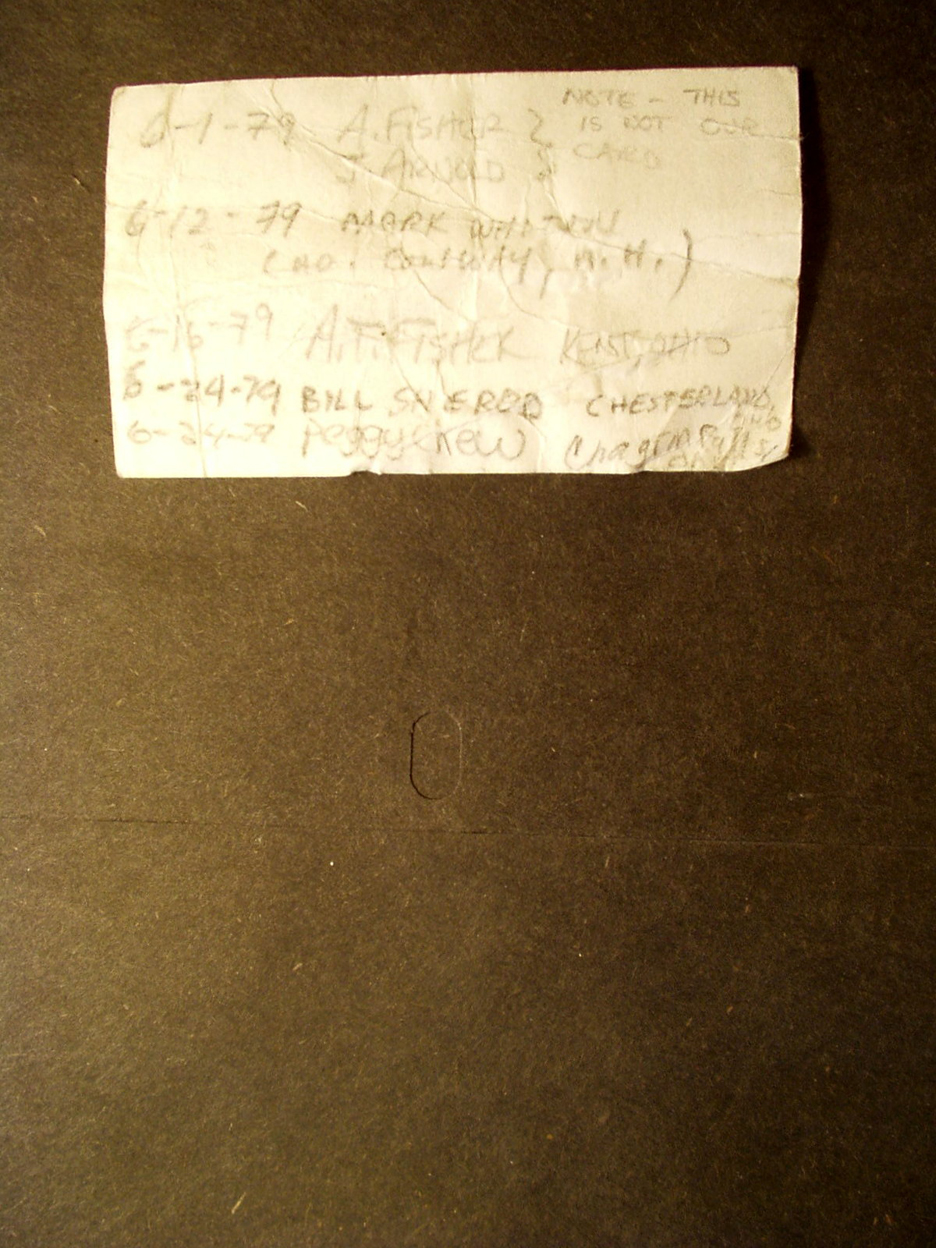 6-1-79 A. FISHER } NOTE - THIS
J. ARNOLD } IS NOT OUR
CARD
6-12-79 MARK
(NO. CONWAY, N.H.)
6-16-79 A.T. FISHER KENT, OHIO
6-24-79 BILL SHEROD CHESTERLAND, OHIO
6-24-79 Peggy Chew Chagrin Falls, OH